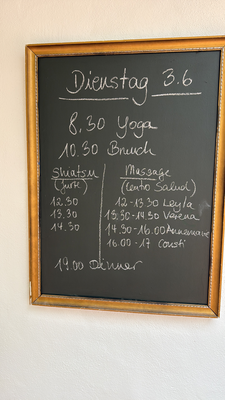 Dienstag 3.6
8.30 Yoga
10.30 Brunch
Shiatsu
12.30
13.30
14.30
Massage
(Centro Salud)
12-13.30 Leyla
13:30-14.30 Verena
14.30-16.00 Annemarie
16.00-17 Consti
19.00 Dinner